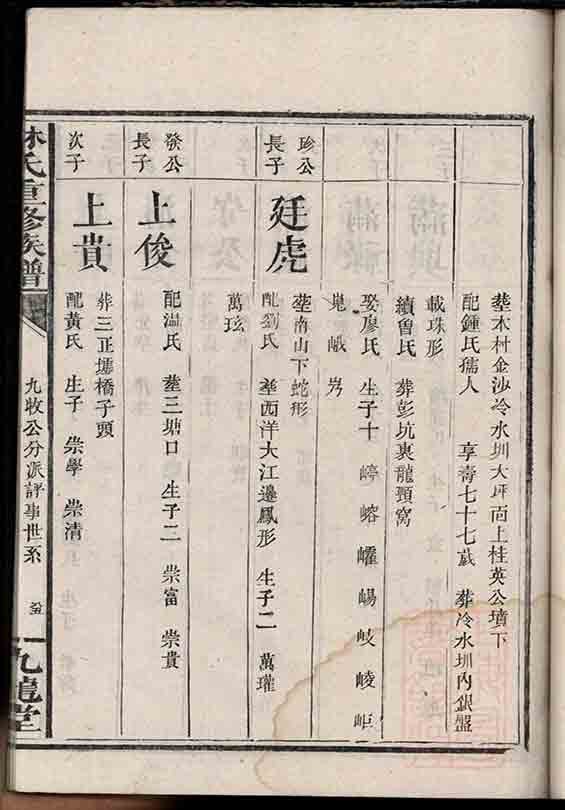 塟木村金沙冷水圳大坪面上桂英公墳下
配鍾氏孺人 享壽七十七歲 葬冷水圳內銀盤
載珠形
續曾氏 葬彭坑裏龍頸窩
娶廖氏 生子十 崞嵱㠢崵岐崚岠
嵬峨
珍公
長子
廷虎
塟南山下蛇形
配劉氏 塟西洋大江邊鳳形 生子二 萬瓘
萬玹
發公
長子
上俊
配溫氏 塟三塘口 生子二 崇富 崇貴
次子
上貴
葬三正壩橋子頭
配黃氏 生子 崇學 崇清
林氏重修族譜
九牧公分派評事世系
九龍堂